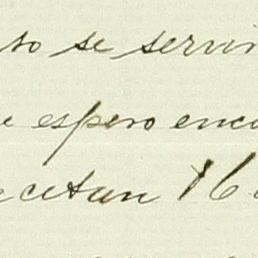 so se servi
e espero enco
cetan 16